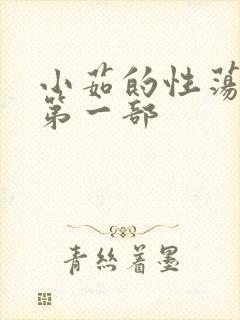 小茹的性荡
第一部
青丝着墨